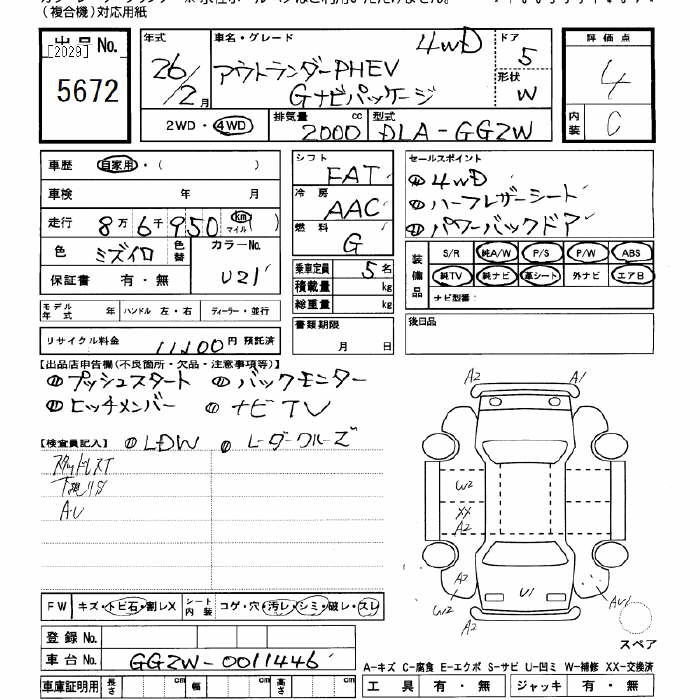 (複合機)対応用紙
出品No. [2029] 5672
年式 26/2月
車名・グレード 4WD アウトランダーPHEV
Gナビパッケージ
ドア 5
形状 W
2WD・4WD 排気量 2000 cc 型式 DLA-GG2W
評価点 4
内装 C
車歴 自家用・( )
車検 年 月
走行 8万6千950 (km マイル)
色 ミズイロ 色替 カラーNo. U21
保証書 有・無
モデル年式 年 ハンドル 左・右 ディーラー・並行
リサイクル料金 11,100円 預託済
シフト FAT
冷房 AAC
燃料 G
乗車定員 5名
積載量 kg
総重量 kg
書類期限 月 日
セールスポイント
① 4WD
② ハーフレザーシート
③ パワーバックドア
装備品 S/R 純A/W P/S P/W ABS
純TV 純ナビ 革シート 外ナビ エアB
ナビ型番:
後日品
【出品店申告欄(不良箇所・欠品・注意事項等)】
プッシュスタート バックモニター
ヒッチメンバー ナビTV
【検査員記入】 LDW レーダークルーズ
A2 A1
W2
XX
A2
A2
W2
U1
AU1
スペア
FW キズ・トビ石・割レX シート内装 コゲ・穴・汚レ・シミ・破レ・スレ
登録No.
車台No. GG2W-0011446
車庫証明用 長さ cm 幅 cm 高さ cm
A-キズ C-腐食 E-エクボ S-サビ U-凹ミ W-補修 XX-交換済
工具 有・無 ジャッキ 有・無